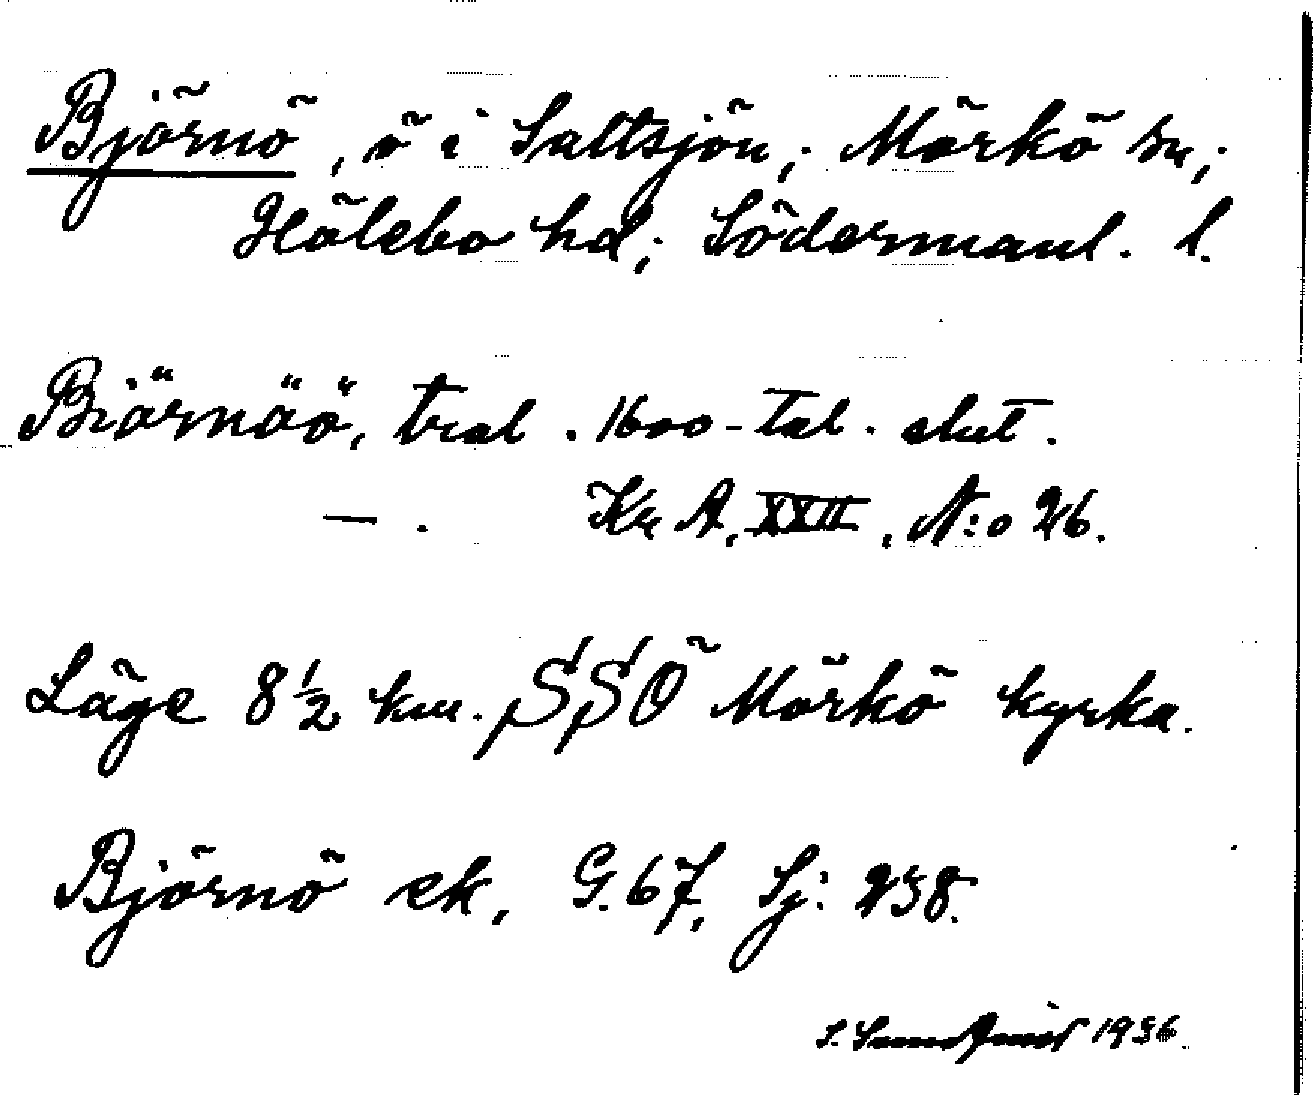 Björnö, ö i Saltsjön; Mörkö sn;
Hölebo hd; Södermanl. l.
Biörnöö, tral. 1600-tal. slut.
— . Kr A. XXII, N:o 26.
Läge 8 1/2 km. SSÖ Mörkö kyrka.
Björnö ek, G. 67, Sj: 238.
S. 1936.